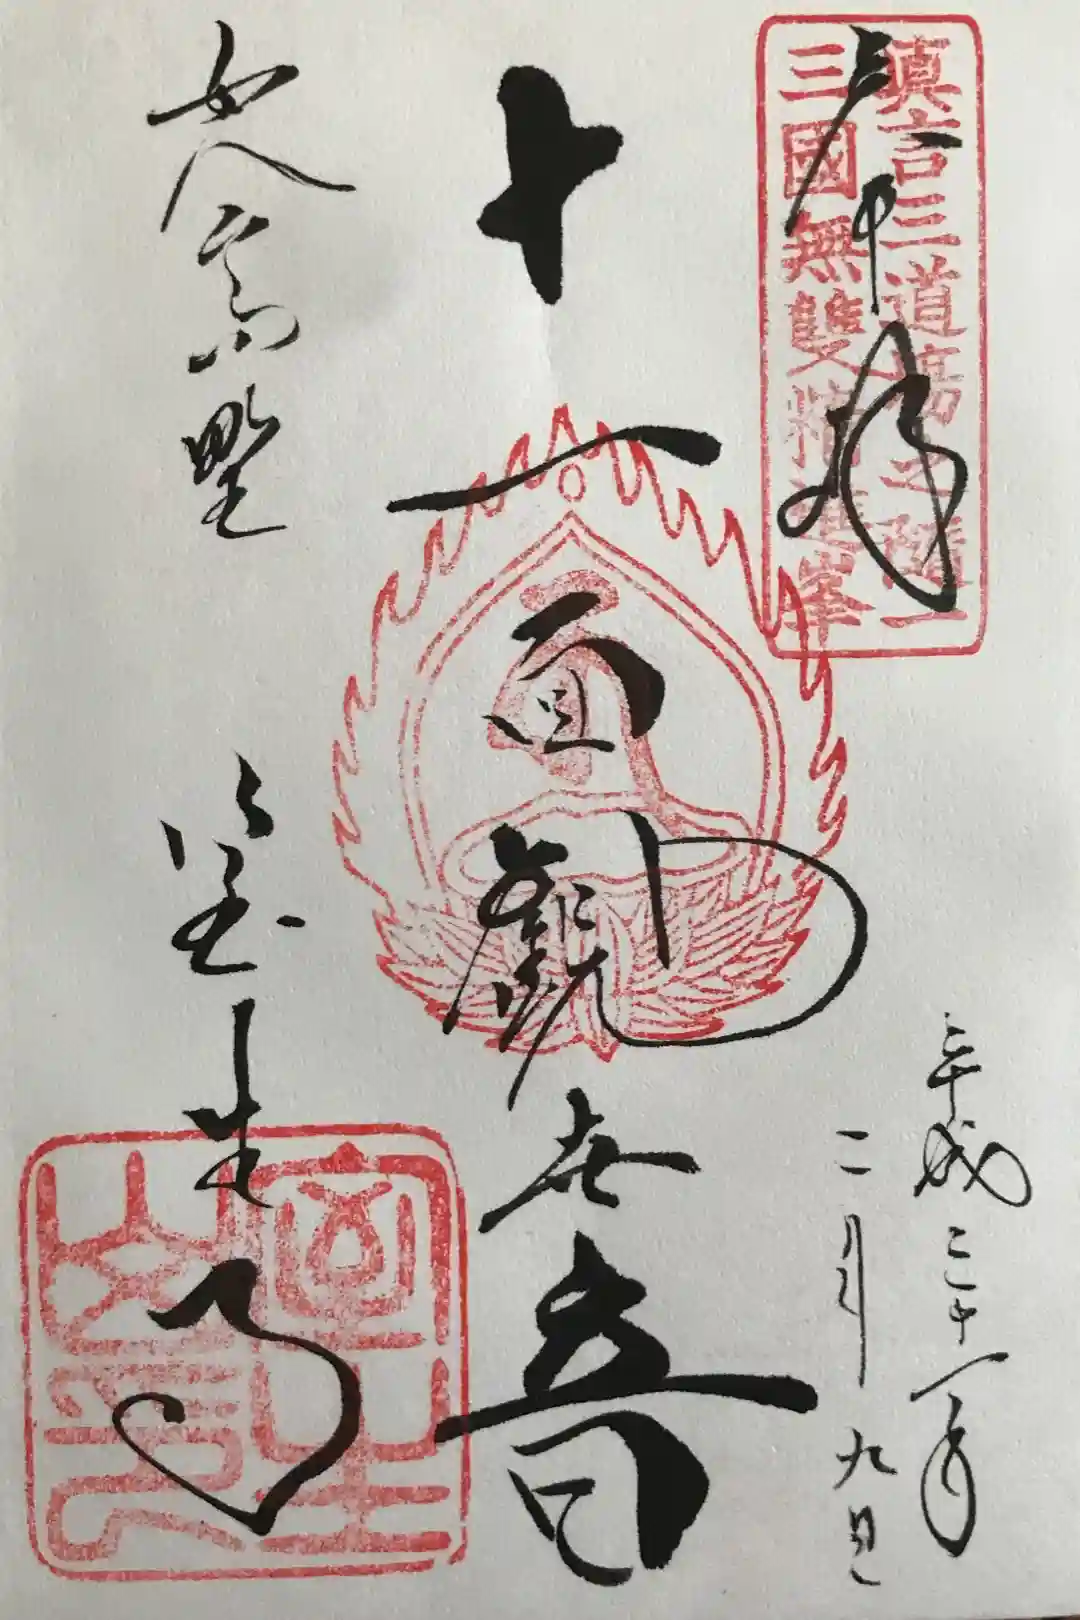 奉拝
眞言三道場之隨一
三國無雙精進峯
平成三十一年
二月九日
十一面観世音
女人高野
室生寺